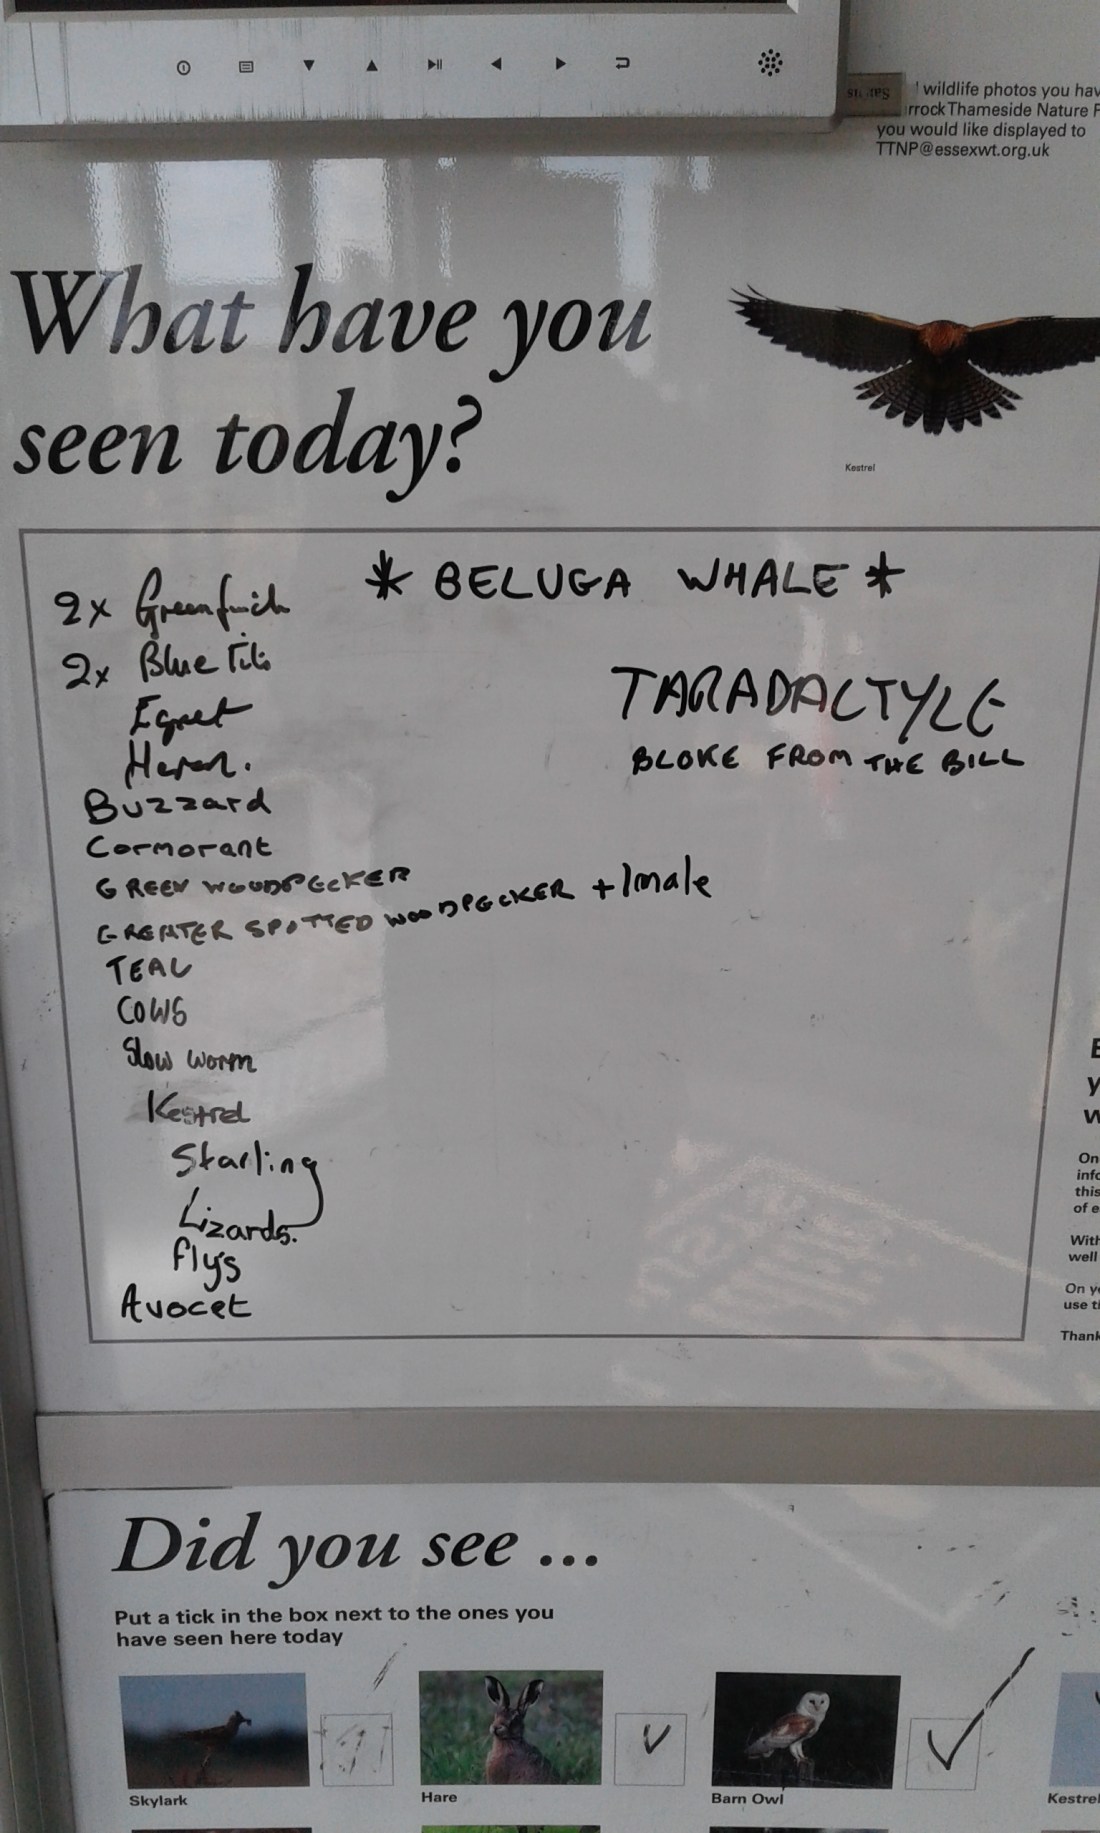 wildlife photos you hav
rrock Thameside Nature P
you would like displayed to
TTNP@essexwt.org.uk
What have you
seen today?
Kestrel
* BELUGA WHALE *
2x Greenfinch
2x Blue Tits
TARADACTYLE
Egret
BLOKE FROM THE BILL
Heron.
Buzzard
Cormorant
GREEN WOODPECKER
GREATER SPOTTED WOODPECKER + 1 male
TEAL
COWS
Slow worm
Kestrel
Starling
Lizards.
flys
Avocet
E
y
w
On
info
this
of e
With
well
On yo
use ti
Thank
Did you see ...
Put a tick in the box next to the ones you
have seen here today
Skylark
Hare
Barn Owl
Kestrel